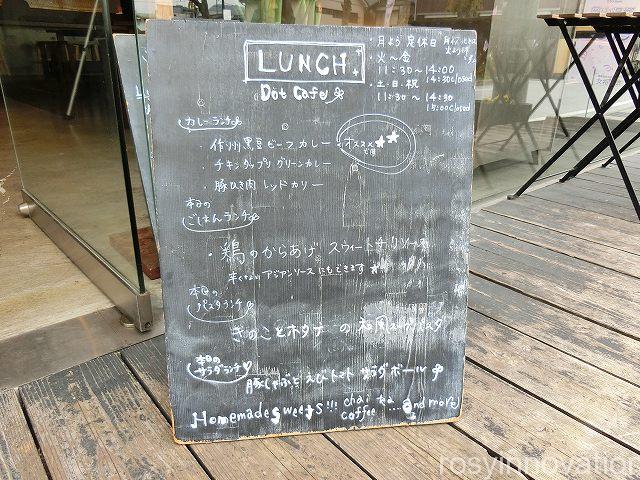 LUNCH
Dot Cafe
月よう定休日
・火〜金
11:30〜14:00
14:30closed
・土・日・祝
11:30〜14:30
15:00closed
カレーランチ
・作州黒豆ビーフカレー
オススメです
・チキンタップリグリーンカレー
・豚ひき肉レッドカリー
本日のごはんランチ
・鶏のからあげ スウィートチリソース
アジアンソースにもできます
本日のパスタランチ
きのことホタテの和風スープパスタ
本日のサラダランチ
豚しゃぶとえびトマトサラダボール
Homemade sweets!!! chai tea coffee ...and more
rosyinnovation